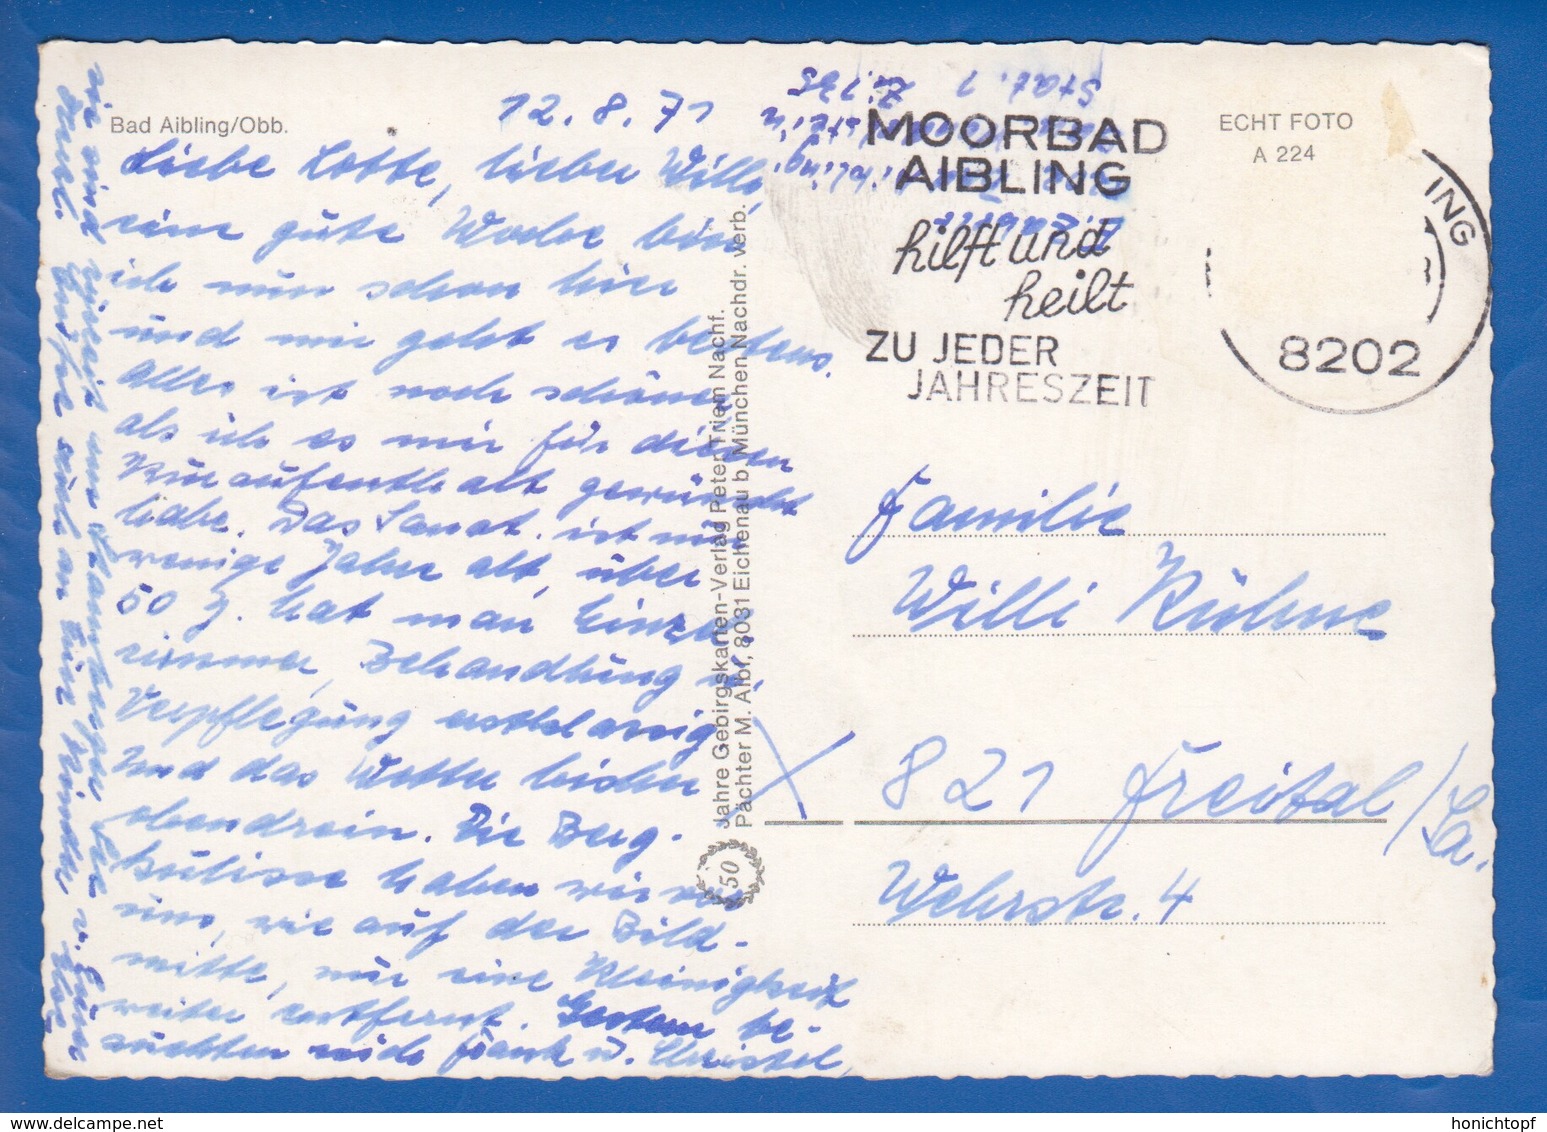 Bad Aibling/Obb.
12.8.71
Liebe Lotte, lieber Willi,
eine gute Woche bin
ich nun schon hier
und mir geht es bestens.
Alles ist noch schöner
als ich es mir für diesen
Kuraufenthalt gewünscht
habe. Das Sanat. ist nur
wenige Jahre alt, über
50 J. hat man Einzel-
zimmer, Behandlung u.
Verpflegung erstklassig
und das Wetter bisher
obendrein. Die Berg-
kulisse haben wir vor
uns, wie auf der Bild-
mitte, nur eine Kleinigkeit
weiter entfernt. Gestern be-
suchten mich Frank u. Christel,
Jahre Gebirgskarten-Verlag Peter Triem Nachf.
Pächter M. Albr, 8031 Eichenau b. München Nachdr. verb.
50
Stat. 1
MOORBAD
AIBLING
hilft und
heilt
ZU JEDER
JAHRESZEIT
ECHT FOTO
A 224
ING
8202
Familie
Willi Kühne
821 Freital/Sa.
Wehrstr. 4
honichtopf
delcampe.net